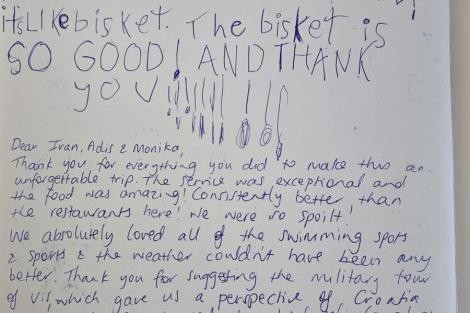 it's LIKe bisket. The bisket is
SO GOOD! AND THANK
YOU!!!!!!!!!!
Dear Ivan, Adis & Monika,
Thank you for everything you did to make this an
unforgettable trip. The service was exceptional and
the food was amazing! Consistently better than
the restaurants here! We were so spoilt!
We absolutely loved all of the swimming spots
& sports & the weather couldn't have been any
better. Thank you for suggesting the military tour
of Vis, which gave us a perspective of Croatia